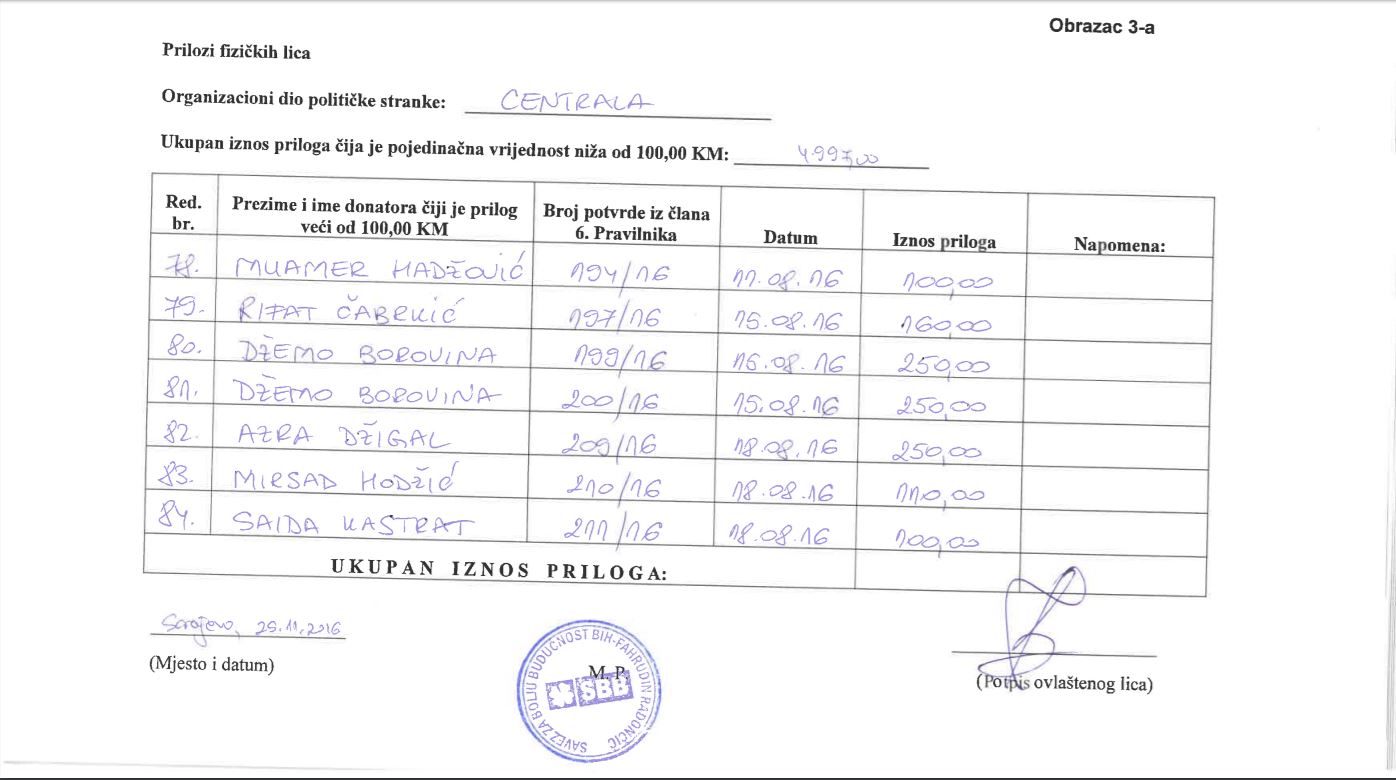 Obrazac 3-a
Prilozi fizičkih lica
Organizacioni dio političke stranke: CENTRALA
Ukupan iznos priloga čija je pojedinačna vrijednost niža od 100,00 KM: 4.997,00
Red. br. Prezime i ime donatora čiji je prilog veći od 100,00 KM Broj potvrde iz člana 6. Pravilnika Datum Iznos priloga Napomena:
78. MUAMER HADŽOVIĆ 194/16 11.08.16 100,00
79. RIFAT ČABRKIĆ 197/16 15.08.16 160,00
80. DŽEMO BOROVINA 199/16 16.08.16 250,00
81. DŽEMO BOROVINA 200/16 15.08.16 250,00
82. AZRA DŽIGAL 209/16 18.08.16 250,00
83. MIRSAD HODŽIĆ 210/16 18.08.16 110,00
84. SAIDA KASTRAT 211/16 18.08.16 100,00
UKUPAN IZNOS PRILOGA:
Sarajevo, 25.11.2016
(Mjesto i datum)
M. P.
SAVEZ ZA BOLJU BUDUĆNOST BIH-FAHRUDIN RADONČIĆ
SBB
(Potpis ovlaštenog lica)